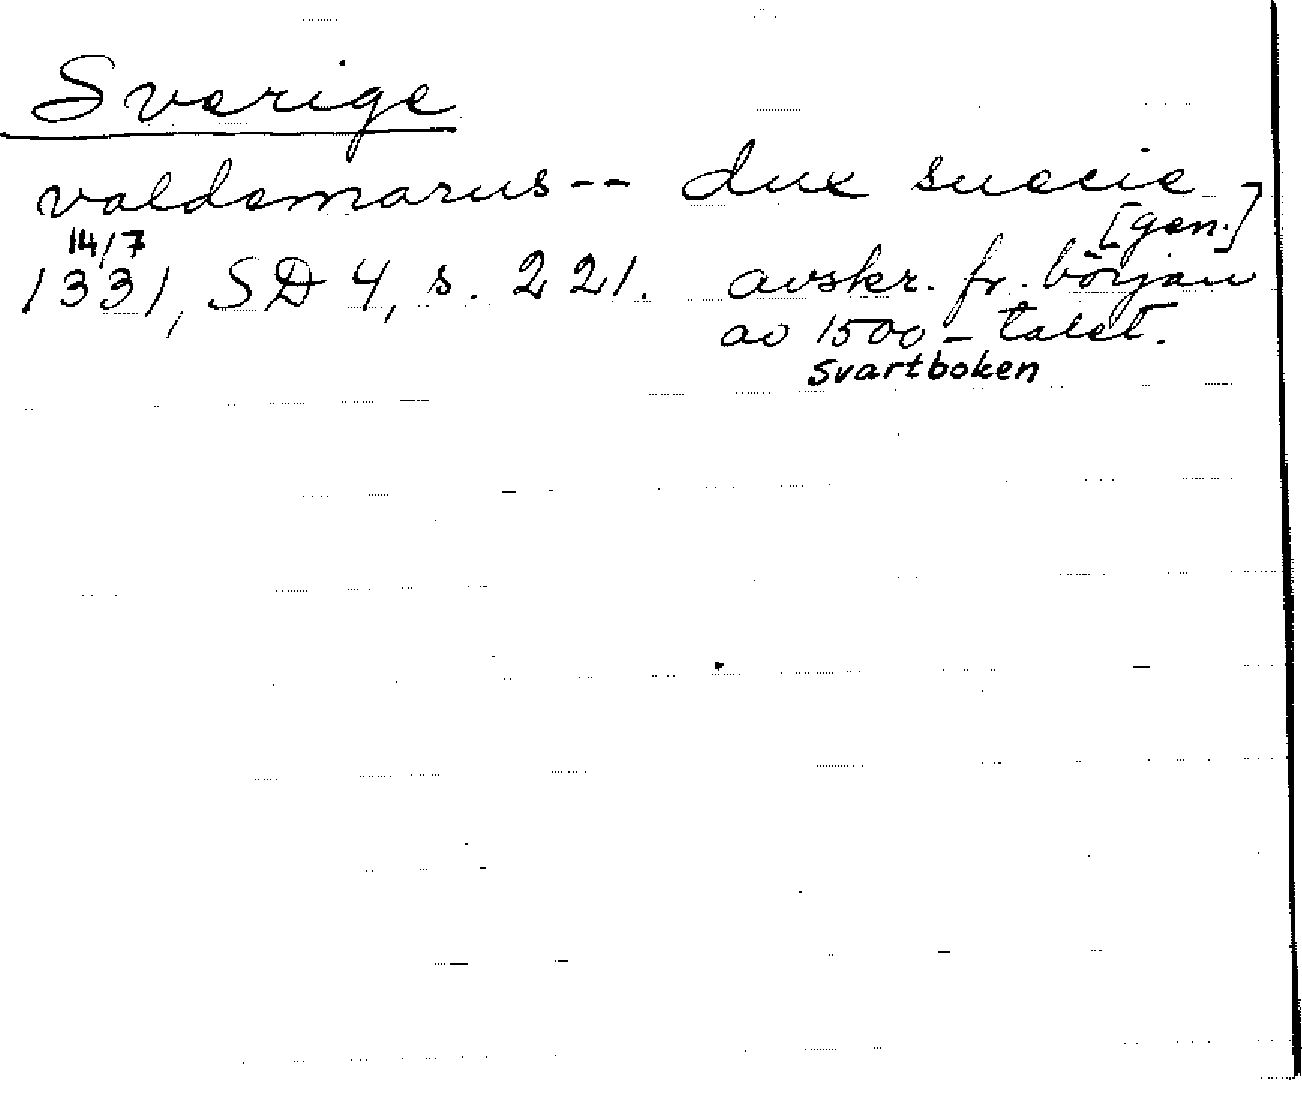 Sverige
valdemarus -- dux suecie
[gen.]
14/7
1331, SD 4, s. 221. avskr. fr. början
av 1500-talet.
svartboken